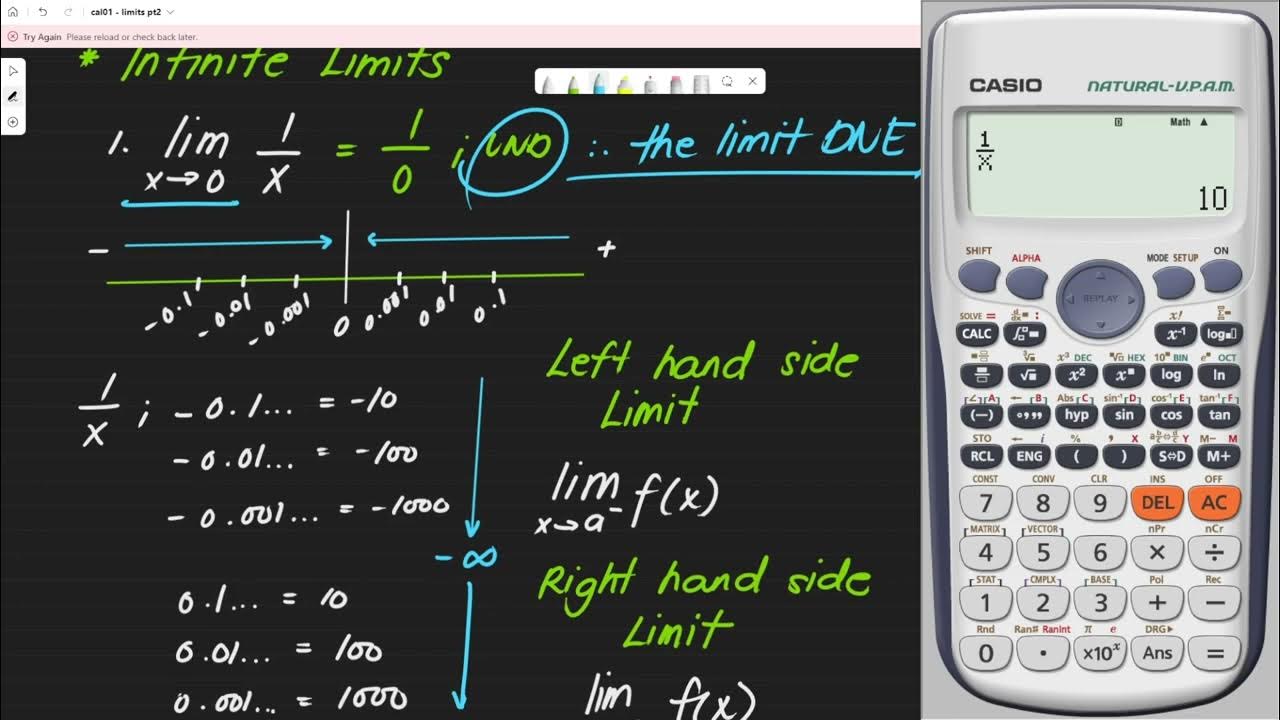 cal01 - limits pt2
Try Again Please reload or check back later.
* Infinite Limits
1. lim x→0 1/x = 1/0 ; UND ∴ the limit DNE
- +
-0.1 -0.01 -0.001 0 0.001 0.01 0.1
1/x ; -0.1... = -10
-0.01... = -100
-0.001... = -1000
-∞
0.1... = 10
0.01... = 100
0.001... = 1000
Left hand side
Limit
lim x→a⁻ f(x)
Right hand side
Limit
lim f(x)
CASIO NATURAL-V.P.A.M.
D Math ▲
1/x
10
SHIFT ALPHA MODE SETUP ON
REPLAY
SOLVE = d/dx : x! Σ
CALC ∫ x⁻¹ log
³√ x³ DEC ˣ√ HEX 10ˣ BIN eˣ OCT
√ x² xˣ log ln
[∠] A ← B Abs C sin⁻¹ D cos⁻¹ E tan⁻¹ F
(−) hyp sin cos tan
STO ← i % , X Y M− M
RCL ENG ( ) S⇔D M+
CONST CONV CLR INS OFF
7 8 9 DEL AC
MATRIX VECTOR nPr nCr
4 5 6 × ÷
STAT CMPLX BASE Pol Rec
1 2 3 + −
Rnd Ran# RanInt π e DRG▶
0 . ×10ˣ Ans =